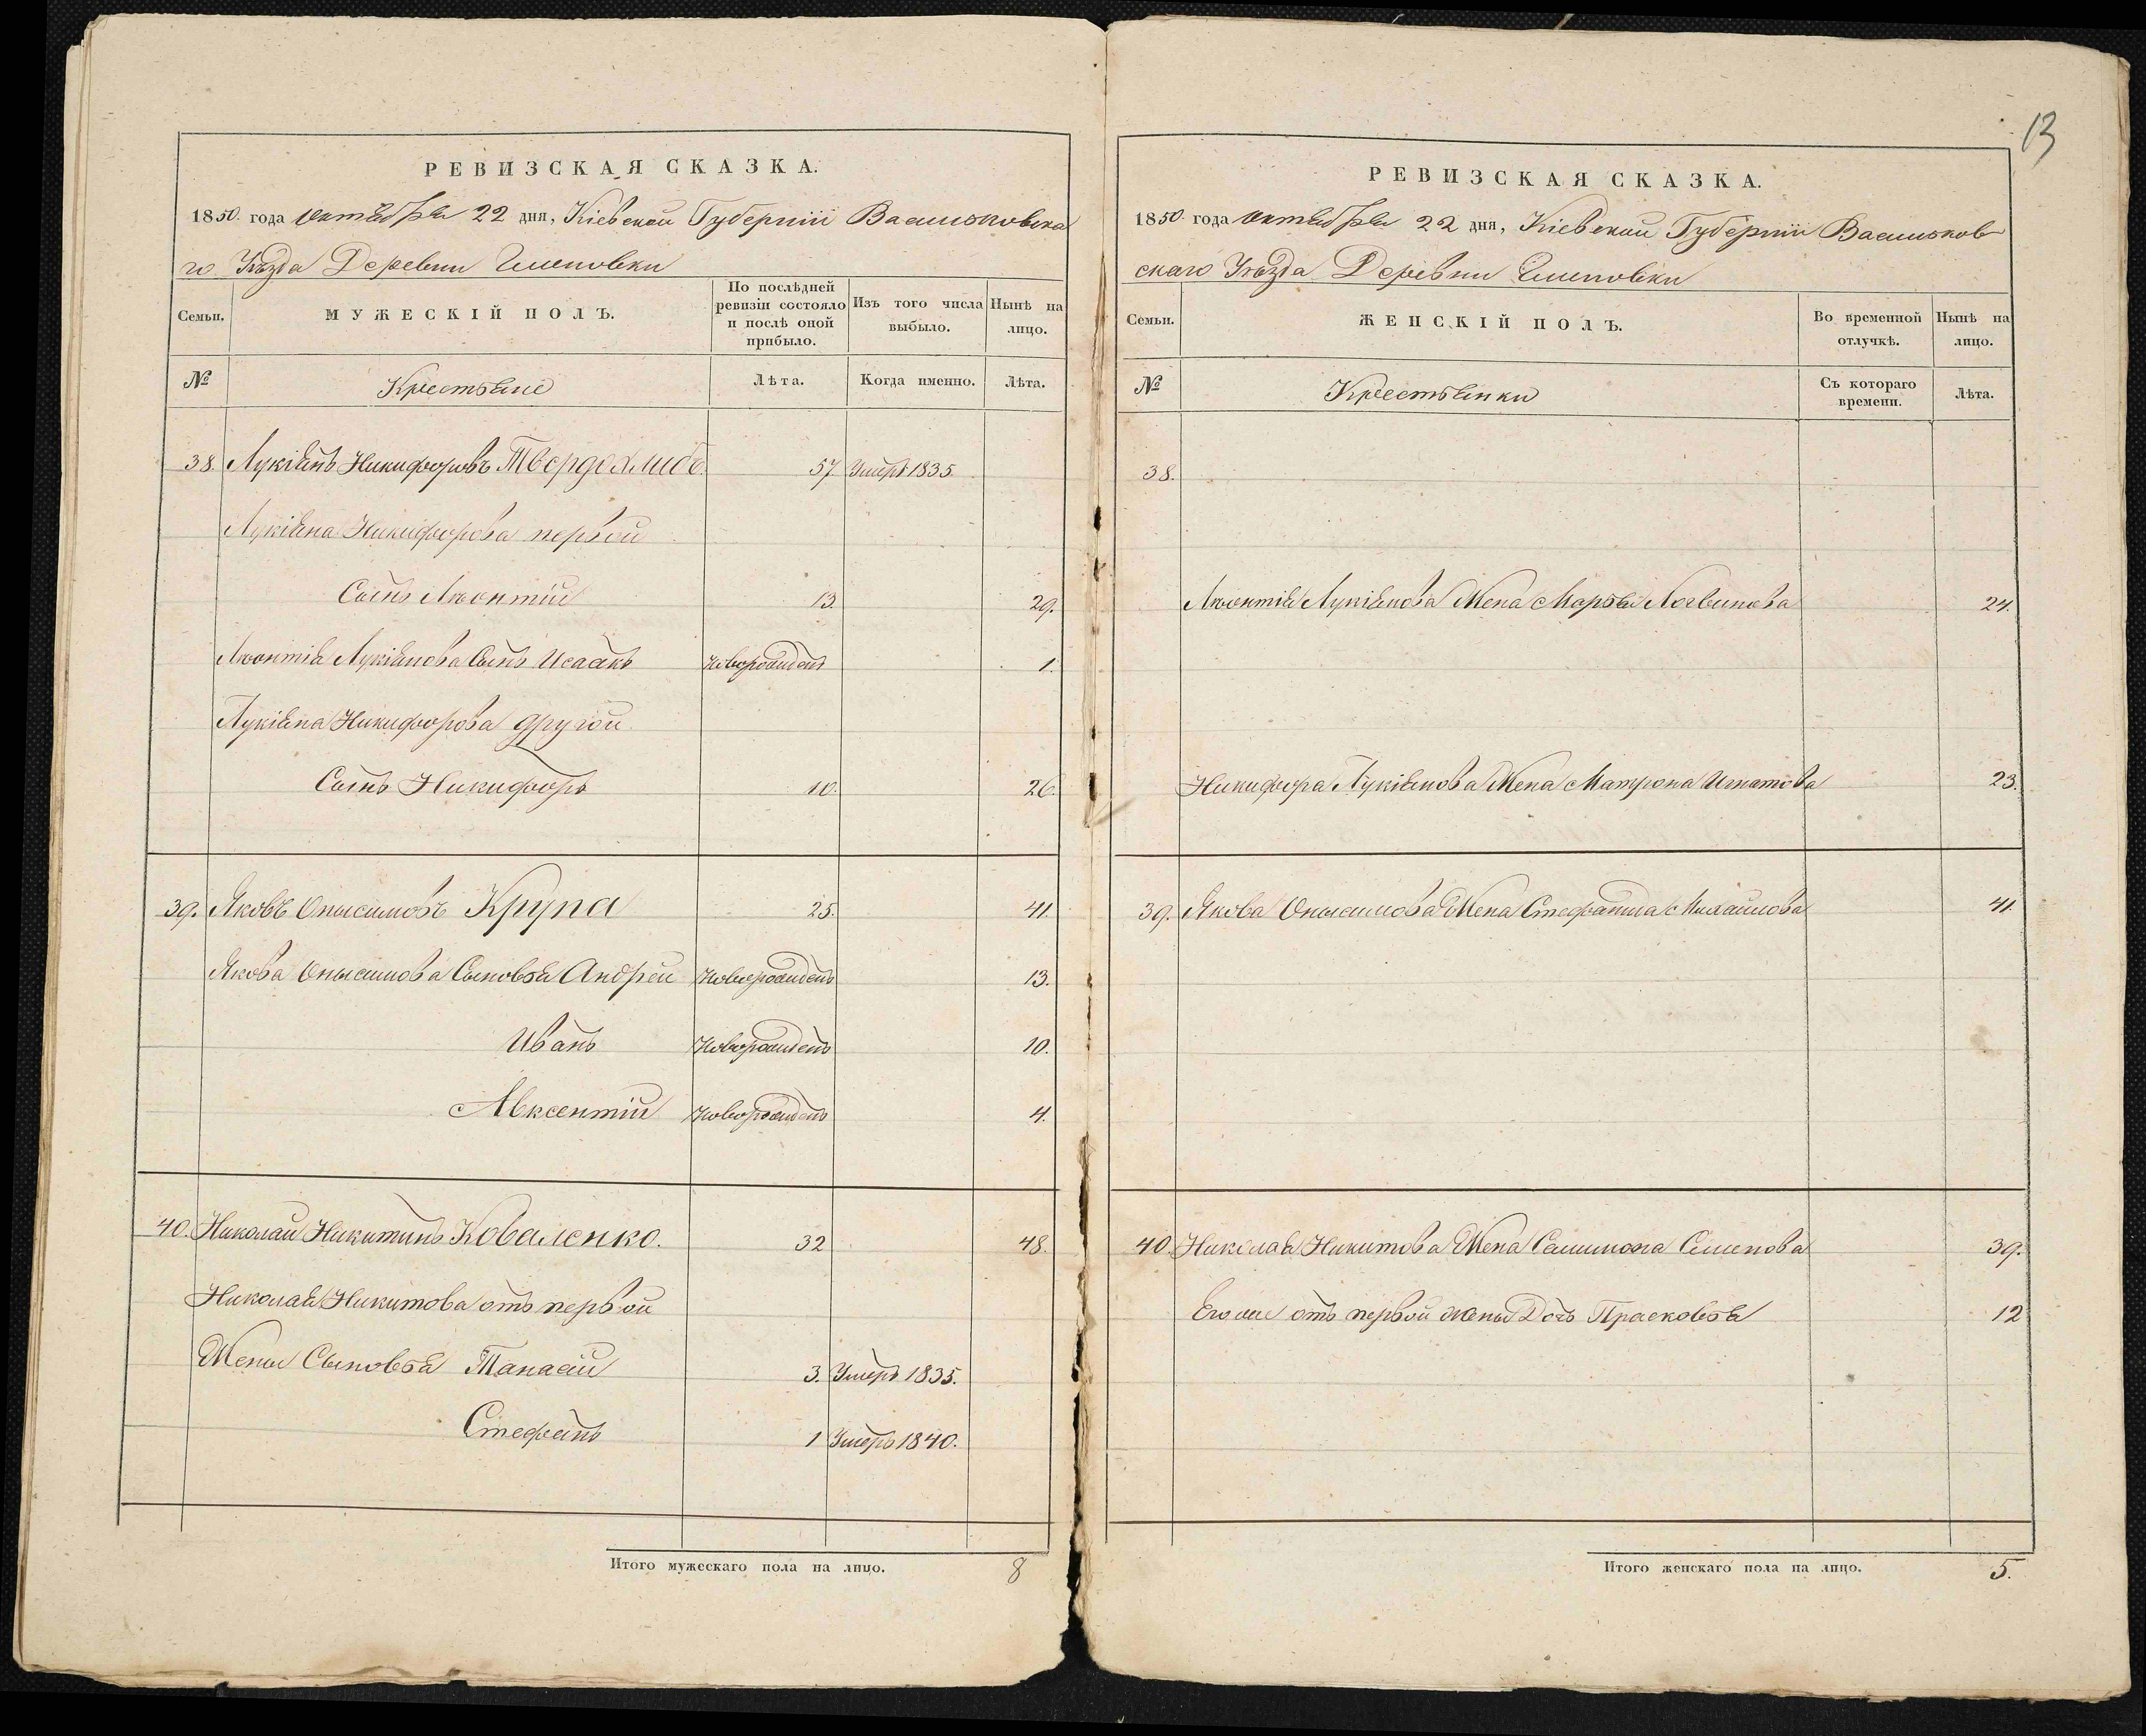 13
РЕВИЗСКАЯ СКАЗКА.
1850. года Октября 22 дня, Кіевской Губерніи Васильковска
го Уѣзда Деревни
Семьи.
МУЖЕСКІЙ ПОЛЪ.
По послѣдней ревизіи состояло и послѣ оной прибыло.
Изъ того числа выбыло.
Нынѣ на лицо.
№
Крестьяне
Лѣта.
Когда именно.
Лѣта.
38. Лукіянъ Никифоровъ Твердохлибъ. 57. Умеръ 1835.
Лукіяна Никифорова первой
Сынъ Люонтій 13. 29.
Люонтія Лукіянова Сынъ Исаакъ Новорожденъ 1.
Лукіяна Никифорова другой
Сынъ Никифоръ 10. 26.
39. Яковъ Онысимовъ Крупа 25. 41.
Якова Онысимова Сыновья Андрей Новорожденъ 13.
Иванъ Новорожденъ 10.
Авксентій Новорожденъ 4.
40. Николай Никитинъ Коваленко. 32 48.
Николая Никитова отъ первой
Жены Сыновья Танасій 3. Умеръ 1835.
Стефанъ 1 Умеръ 1840.
Итого мужескаго пола на лицо. 8
РЕВИЗСКАЯ СКАЗКА.
1850. года Октября 22 дня, Кіевской Губерніи Васильков
скаго Уѣзда Деревни
Семьи.
ЖЕНСКІЙ ПОЛЪ.
Во временной отлучкѣ.
Нынѣ на лицо.
№
Крестьянки
Съ котораго времени.
Лѣта.
38.
Люонтія Лукіянова Жена Марья Логвинова 24.
Никифора Лукіянова Жена Матрона Игнатова 23.
39. Якова Онысимова Жена Стефанида Михайлова 41.
40. Николая Никитова Жена Семенова 39.
Его же отъ первой жены Дочь Прасковья 12
Итого женскаго пола на лицо. 5.